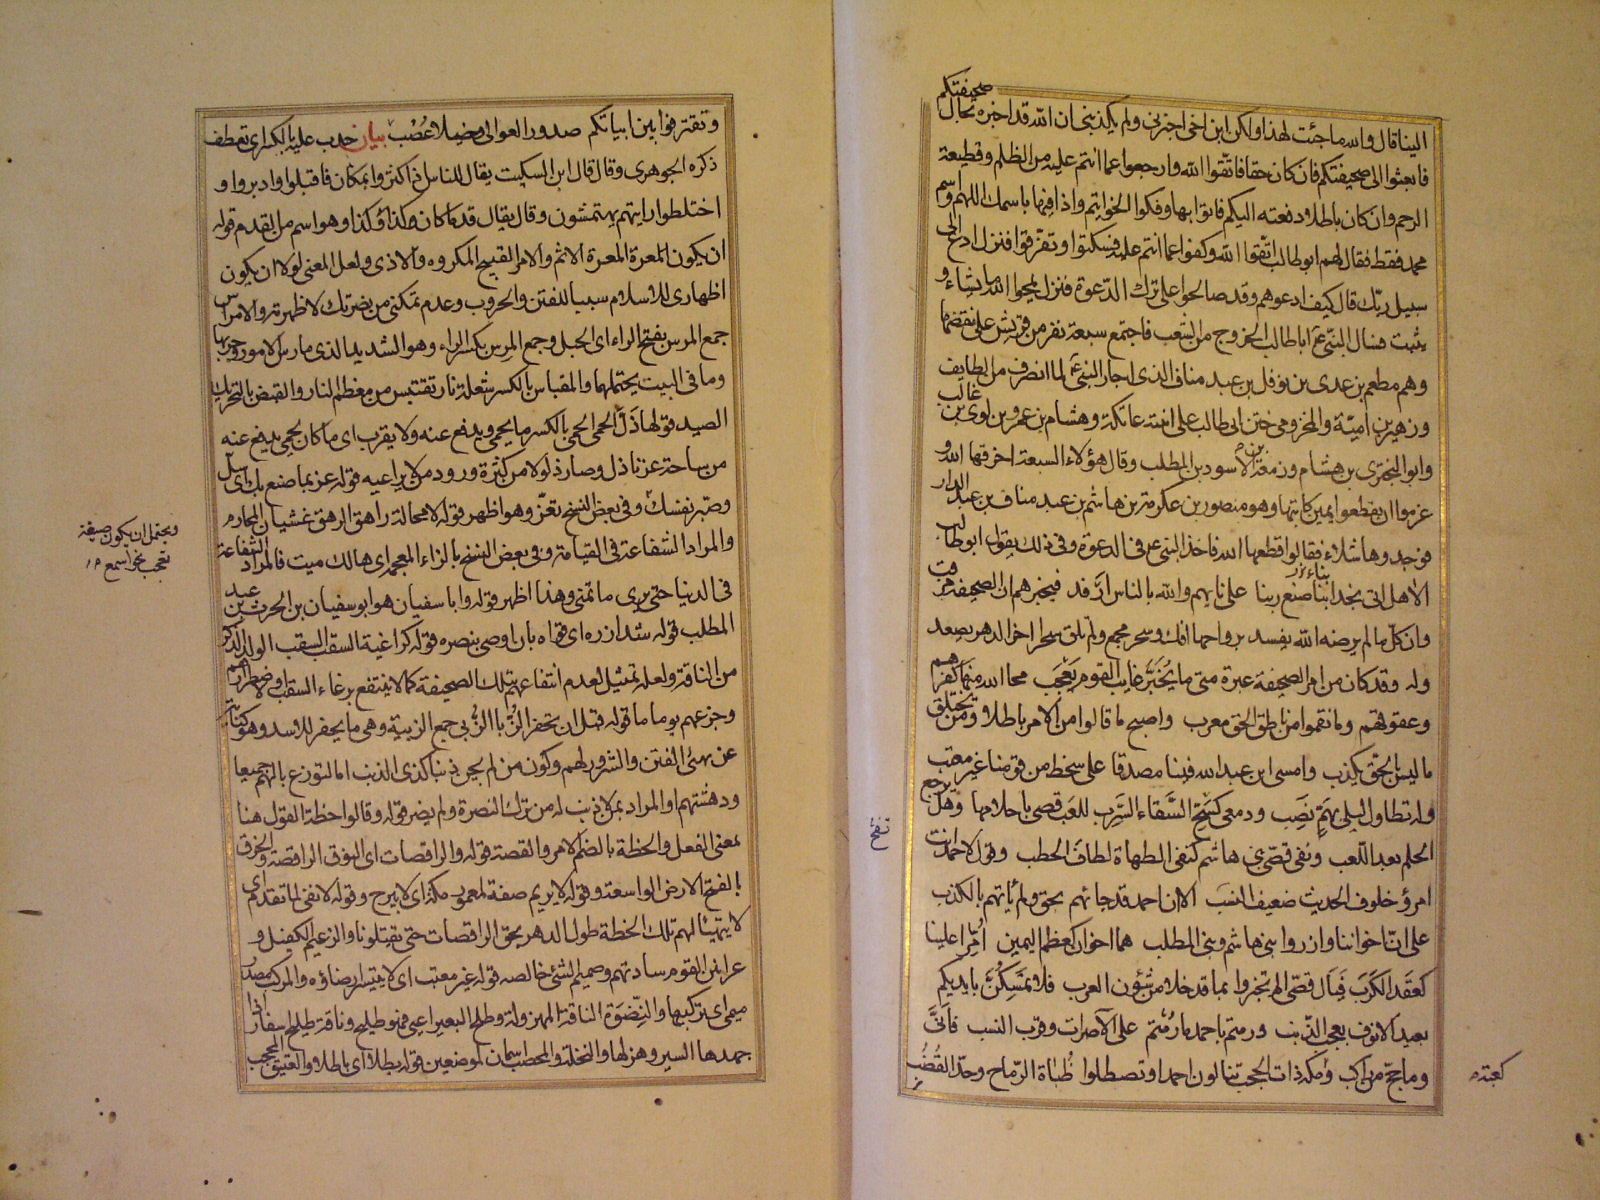 صحيفتكم
الينا قال والله ما جئت لهذا ولكن ابن اخى اخبرنى ولم يكذبنى ان الله قد اخبره بحال
فابعثوا الى صحيفتكم فان كان حقا فاتقوا الله وارجعوا عما انتم عليه من الظلم وقطيعة
الرحم وان كان باطلا دفعته اليكم فاتوا بها وفكوا الخواتيم واذا فيها باسمك اللهم واسم
محمد فقط فقال لهم ابو طالب اتقوا الله وكفوا عما انتم عليه فسكتوا وتفرقوا فنزل ادع الى
سبيل ربك قال كيف ادعوهم وقد صالحوا على ترك الدعوة فنزل يمحوا الله ما يشاء و
يثبت فسال النبى ع ابا طالب الخروج من الشعب فاجتمع سبعة نفر من قريش على نقضها
وهم مطعم بن عدى بن نوفل بن عبد مناف الذى اجار النبى ع لما انصرف من الطايف
وزهير بن امية والمخزومى ختن ابى طالب على ابنته عاتكة وهشام بن عمرو بن لوى بن غالب
وابو البخترى بن هشام وزمعة بن الاسود بن المطلب وقال هؤلاء السبعة احرقها الله و
عزموا ان يقطعوا يمين كاتبها وهو منصور بن عكرمة بن هاشم بن عبد مناف بن عبد الدار
فوجدوها شلاء فقالوا قطعها الله فاخذ النبى ع فى الدعوة وفى ذلك يقول ابو طالب
الا هل اتى نجدا بنا صنع ربنا على نايهم والله بالناس ارفد فيخبرهم ان الصحيفة مزقت
وان كل ما لم يرضه الله يفسد يراوحها افك وسحر مجمع ولم تلق سحرا اخر الدهر يصعد
وله وقد كان من امر الصحيفة عبرة متى ما يخبر غايب القوم يعجب محا الله منها كفرهم
وعقوقهم وما نقموا من ناطق الحق معرب واصبح ما قالوا من الامر باطلا ومن يختلق
ما ليس بالحق يكذب وامسى ابن عبد الله فينا مصدقا على سخط من قومنا غير معتب
وله تطاول ليلى بهم نصب ودمعى كسح السقاء السرب للعب قصى باحلامها وهل يرجع
الحلم بعد اللعب ونفى قصى بنى هاشم كنفى الطهاة لطاف الحطب وقول لاحمد انت
امرؤ خلوف الحديث ضعيف النسب الا ان احمد قد جائهم بحق ولم ياتهم بالكذب
على ان اخواننا وازروا بنى هاشم وبنى المطلب هما اخوان كعظم اليمين امرا علينا
كعقد الكرب فيال قصى الم تخبروا بما قد خلا من شئون العرب فلا تمسكن بايديكم
بعيد الانوف بعجب الذنب ورمتم باحمد ما رمتم على الاصرات وقرب النسب فانى
وما حج من راكب ومكة ذات الحجب تنالون احمد او تصطلوا ظباة الرماح وحد القضب
كعبة
تنفح
وتقترفوا بين ابياتكم صدور العوالى وخيلا عصب بيان حدب عليه بالكسر اى تعطف
ذكره الجوهرى وقال قال ابن السكيت يقال للناس اذا كثروا بمكان فاقبلوا وادبروا و
اختلطوا رايتهم يهتمشون وقال يقال قدما كان كذا وكذا وهو اسم من القدم قوله
ان يكون المعرة المعرة الاثم والامر القبيح المكروه والاذى ولعل المعنى لولا ان يكون
اظهارى للاسلام سببا للفتن والحروب وعدم تمكنى من نصرتك لاظهرته والامراس
جمع المرس بفتح الراء اى الحبل وجمع المرس بكسر الراء وهو الشديد الذى مارس الامور وجربها
وما فى البيت يحتملهما والمقباس بالكسر شعلة نار تقتبس من معظم النار والقنص بالتحريك
الصيد قولها ذل الحمى الحمى بالكسر ما يحمى ويدفع عنه ولا يقرب اى ما كان يحمى يدفع عنه
من ساحة عزنا ذل وصار ذلولا من كثرة ورود من لا يراعيه قوله عز بما صنع بك اى سل
وصبر نفسك وفى بعض النسخ تعز وهو اظهر قوله لا محالة راهق الرهق غشيان المحارم
والمراد الشفاعة فى القيامة وفى بعض النسخ بالزاء المعجمة اى هالك ميت فالمراد الشفاعة
فى الدنيا حتى يرى ما تمنى وهذا اظهر قوله وابا سفيان هو ابو سفيان بن الحرث بن عبد
المطلب قوله شد ازره اى قواه بان اوصى بنصره قوله كراغية السقب السقب الولد الذكر
من الناقة ولعله تمثيل لعدم انتفاعهم بتلك الصحيفة كما لا ينتفع برغاء السقب او لاضطرارهم
وجزعهم يوما ما قوله قبل ان تحفر الزبا الزبى جمع الزبية وهى ما يحفر للاسد وهو كناية
عن تهيئ الفتن والشرور لهم وكون من لم يجن ذنبا كذى الذنب اما لتوزع بالهم جميعا
ودهشتهم او المراد بمن لا ذنب له من ترك النصرة ولم يضر قوله وقالوا خطة القول هنا
بمعنى الفعل والخطة بالضم الامر والقصة قوله والراقصات اى النوق الراقصة والخرق
بالفتح الارض الواسعة وقوله لا يريم صفة لمعمور مكة اى لا يبرح وقوله لا نفى لما تقدم اى
لا يتهيئا لهم تلك الخطة طول الدهر بحق الراقصات حتى يقتلونا والزعيم الكفيل و
عرانين القوم سادتهم وصميم الشئ خالصه قوله غير معتب اى لا يتيسر ارضاؤه والمركب مصدر
ميمى اى تركبها والنضوة الناقة المهزولة وطلح البعير اعيى فهو طليح وناقة طليح اسفار اذا
جهدها السير وهزلها والنخلة والمحطب اسمان لموضعين قوله بطلا اى باطلا والعتيق المحجب
ويحتمل ان يكون صيغة
تعجب نحو اسمع